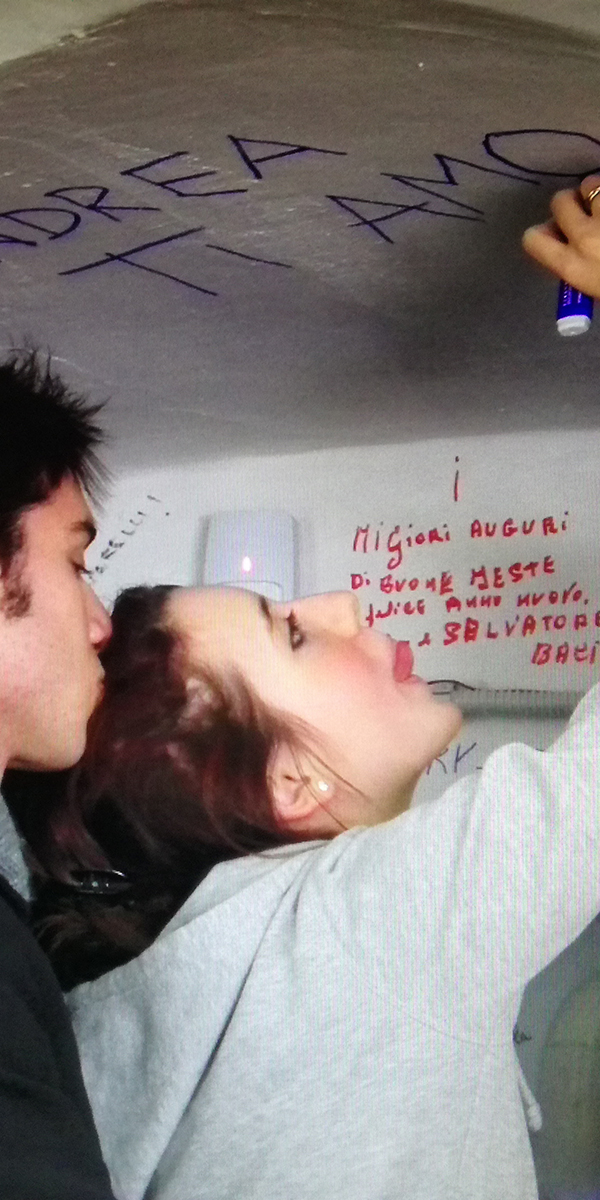 ANDREA
TI AMO
i
MIGIORI AUGURI
Di BUONE FESTE
felice ANNO NUOVO.
e SALVATORE
BACI